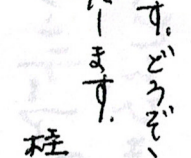 す。どうぞ、
します。
桎